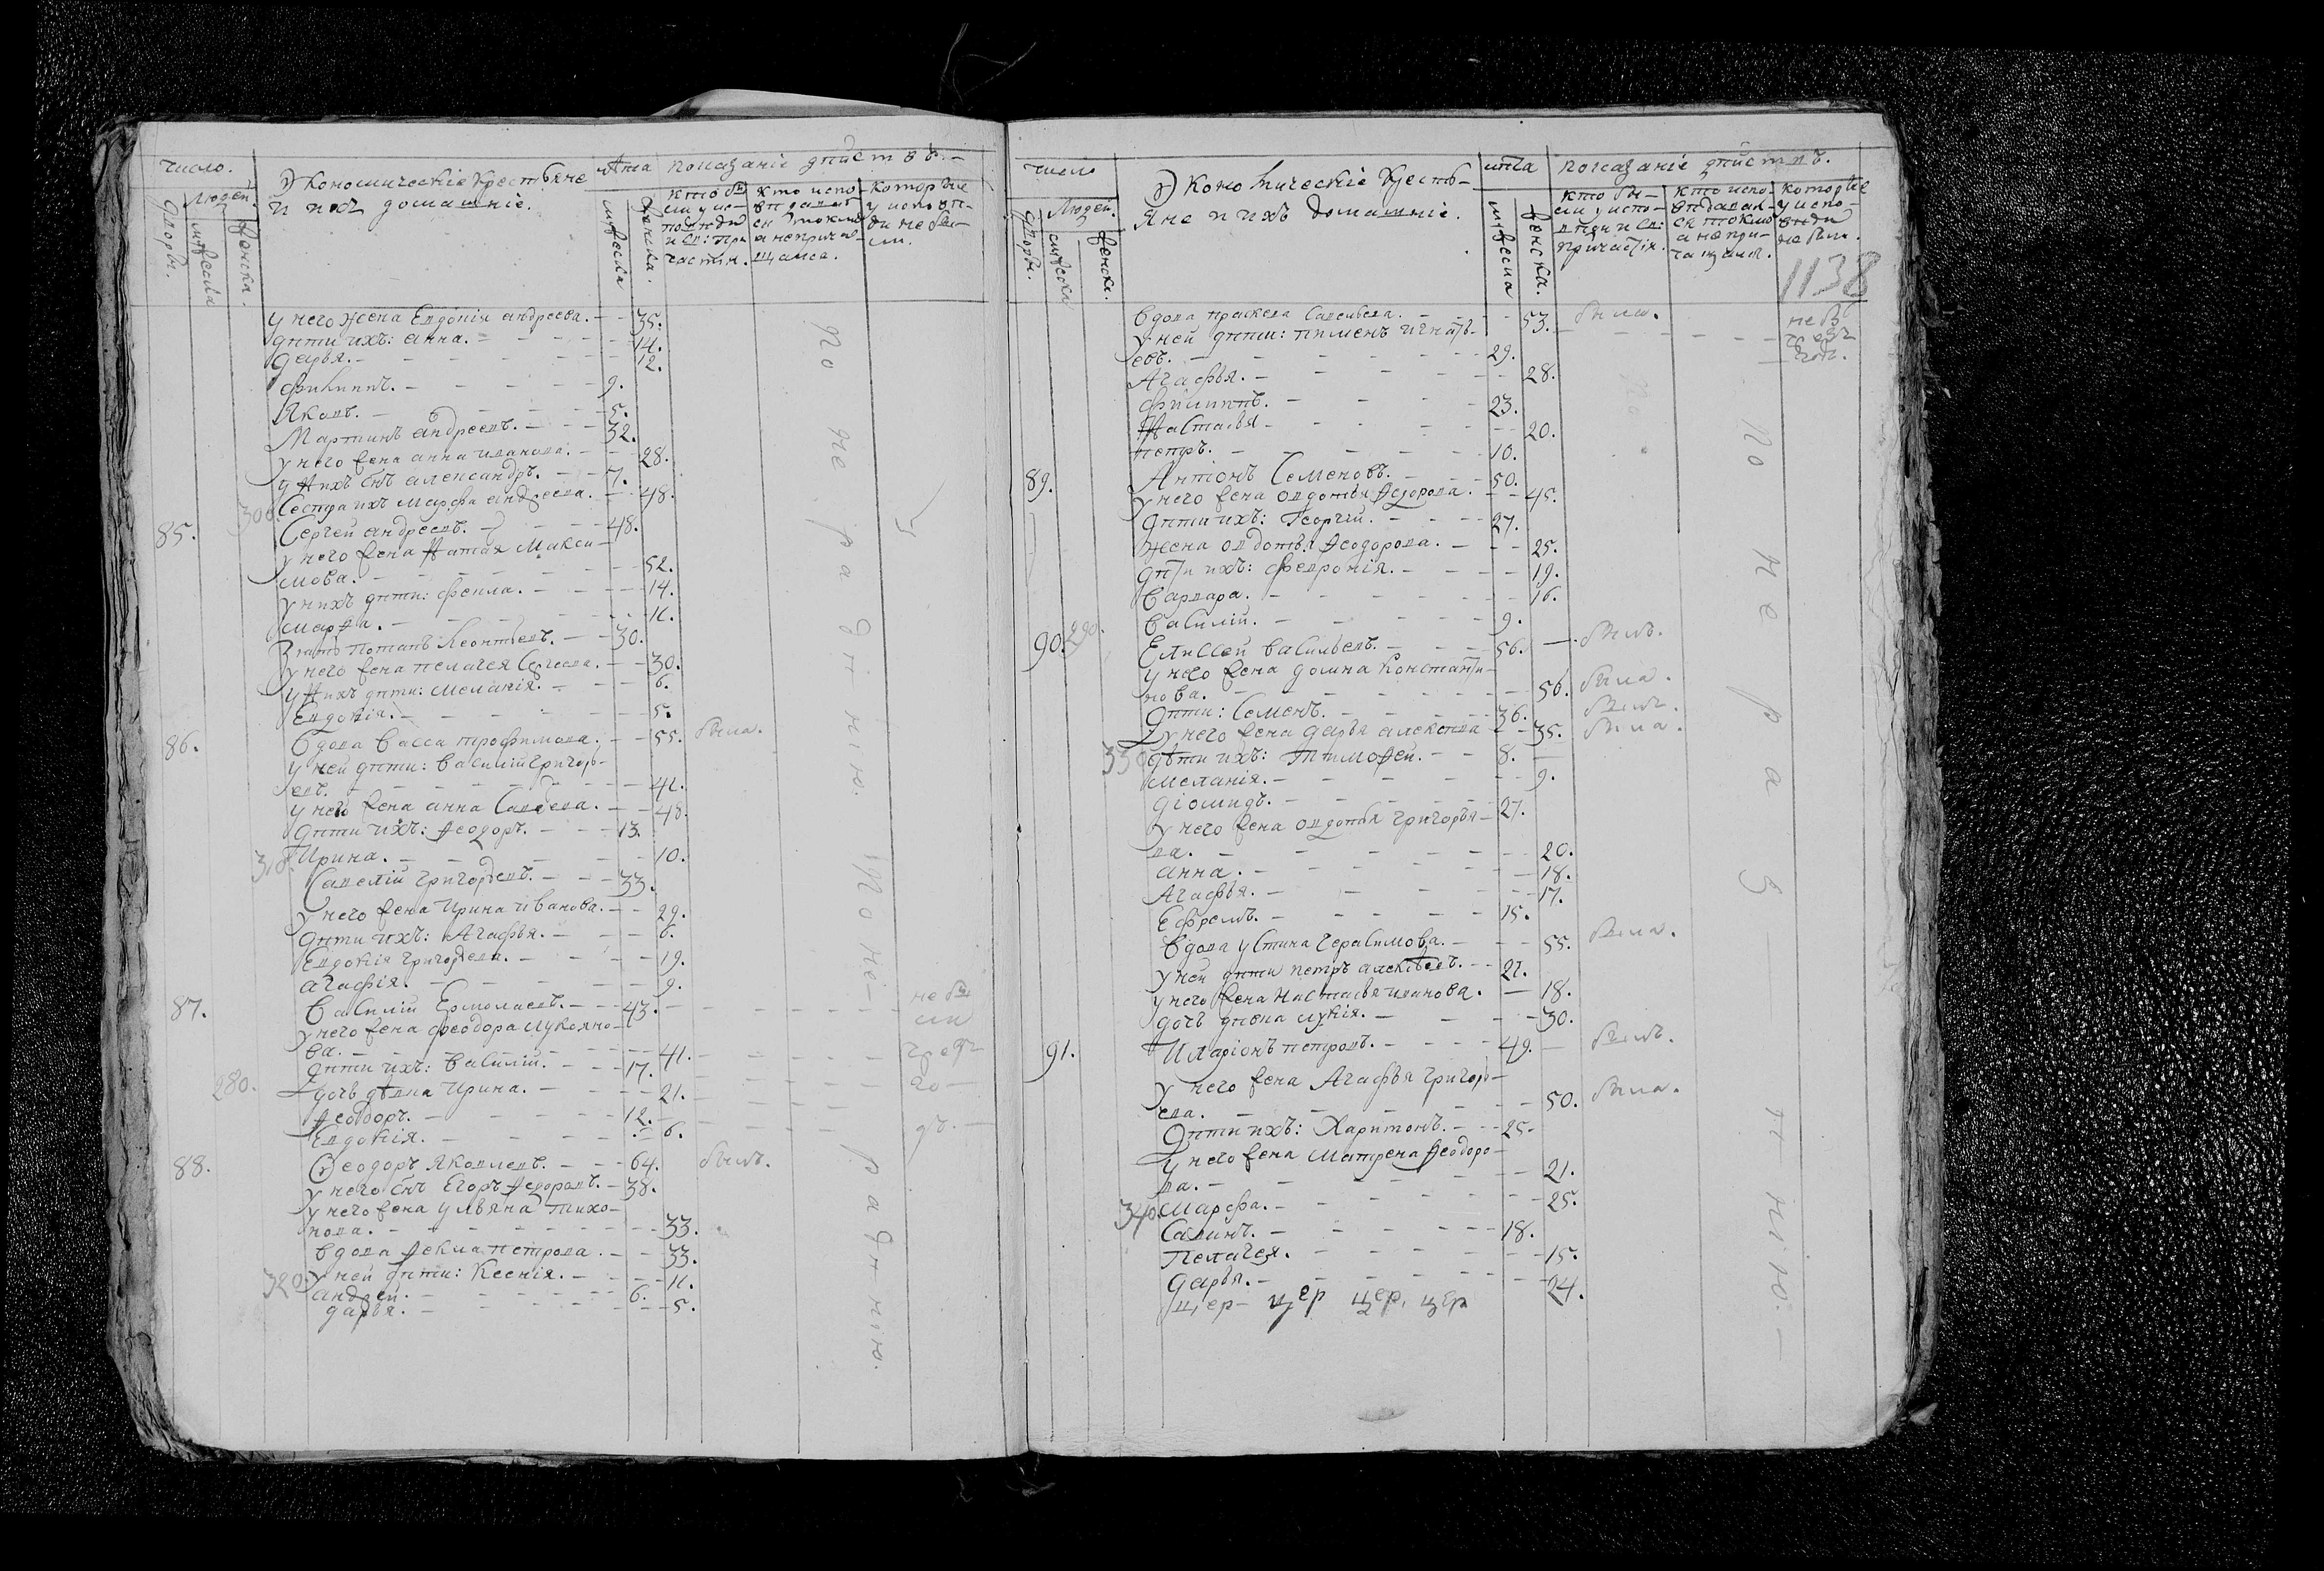 число.
Экономическіе крестьяне
лѣта
показаніе дѣйствъ.
и ихъ домашніе.
людей.
дворы.
мужеска
женска.
мужеска
женска.
кто были у исповѣди и св: причастія.
кто исповѣдался токмо а не причащался.
которые у исповѣди не были.
у него жена Евдокія андреева. 35.
дѣти ихъ: анна. 14.
дарья. 12.
филиппъ. 9.
Яковъ. 5.
Мартинъ андреевъ. 32.
у него жена анна иванова. 28.
у нихъ снъ александръ. 7.
Сестра ихъ марфа андреева. 48.
300.
85. Сергей андреевъ. 48.
у него жена Макси-
мова. 52.
у нихъ дѣти: фекла. 14.
марфа. 11.
Зять потапъ Леонтьевъ. 30.
у него жена пелагея Сергеева. 30.
у нихъ дѣти: меланія. 6.
Евдокія. 5.
86. вдова васса трофимова. 55. была.
у ней дѣти: василій григорь-
евъ. 41.
у него жена анна Савельева. 48.
дѣти ихъ: Ѳеодоръ. 13.
310. Ирина. 10.
Савелій григорьевъ. 33.
у него жена Ирина иванова. 29.
дѣти ихъ: Агафья. 6.
Евдокія григорьева. 19.
агафія. 9.
87. Василій Ермолаевъ. 43. не бы
у него жена феодора лукояно- ли
ва. 41. чрезъ
дѣти ихъ: василій. 17.
280. дочь дѣвка Ирина. 21. го
Ѳеодоръ. 12.
Евдокія. 6. дъ.
88. Ѳеодоръ Яковлевъ. 64. былъ.
у него снъ Егоръ Ѳедоровъ. 38.
у него жена ульяна тихо-
нова. 33.
вдова Ѳекла петрова. 33.
у ней дѣти: Ксенія. 11.
320. андрей. 6.
дарья. 5.
по не радѣнію.
по не радѣнію.
число
Экономическіе кресть-
лѣта
показаніе дѣйствъ.
яне и ихъ домашніе.
людей.
дворы.
мужеска
женска.
мужеска
женска.
кто были у исповѣди и св: причастія.
кто исповѣдался токмо а не причащался.
которые у исповѣди не были.
1138
вдова праскева Савельева. 53. была. не б
у ней дѣти: пименъ игнать- чрезъ
евъ. 29. годъ.
Агафья. 28.
филиппъ. 23.
Настасья 20.
петръ. 10.
89. Антонъ Семеновъ. 50.
у него жена авдотья Ѳедорова. 45.
дѣти ихъ: Георгій. 27.
жена авдотья Ѳеодорова. 25.
дѣти ихъ: февронія. 19.
варвара. 16.
василій. 9.
90. 290. Елиссей васильевъ. 56. былъ.
у него жена домна Константи-
нова. 56. была.
дѣти: Семенъ. 36. былъ.
у него жена дарья алексеева 35. была.
330 дѣти ихъ: Тимофей. 8.
меланія. 9.
діомидъ. 27.
у него жена авдотья григорье-
ва. 20.
анна. 18.
Агафья. 17.
Ефремъ. 15.
вдова устина герасимова. 55. была.
у ней дѣти петръ алексѣевъ. 21.
у него жена настасья иванова. 18.
дочь дѣвка лукія. 30.
91. Иларіонъ петровъ. 49. былъ.
у него жена Агафья григорь-
ева. 50. была.
дѣти ихъ: Харитонъ. 25.
у него жена матрена Ѳеодоро-
ва. 21.
340. марфа. 25.
Савинъ. 18.
Пелагея. 15.
дарья. 24.
цер- цер цер. цер
по не радѣнію.